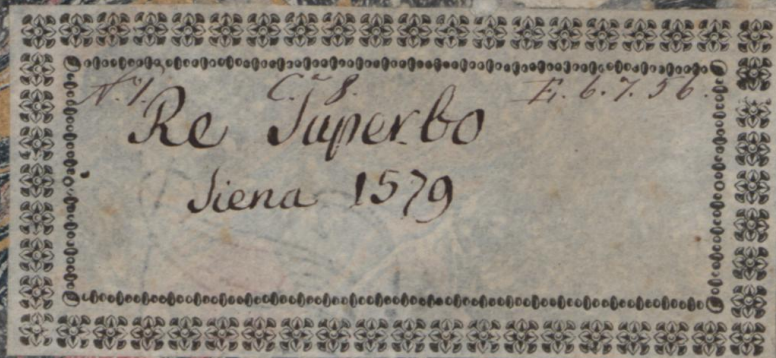 N. 1. C. 8. E. 6. 7. 56.
Re Superbo
Siena 1579